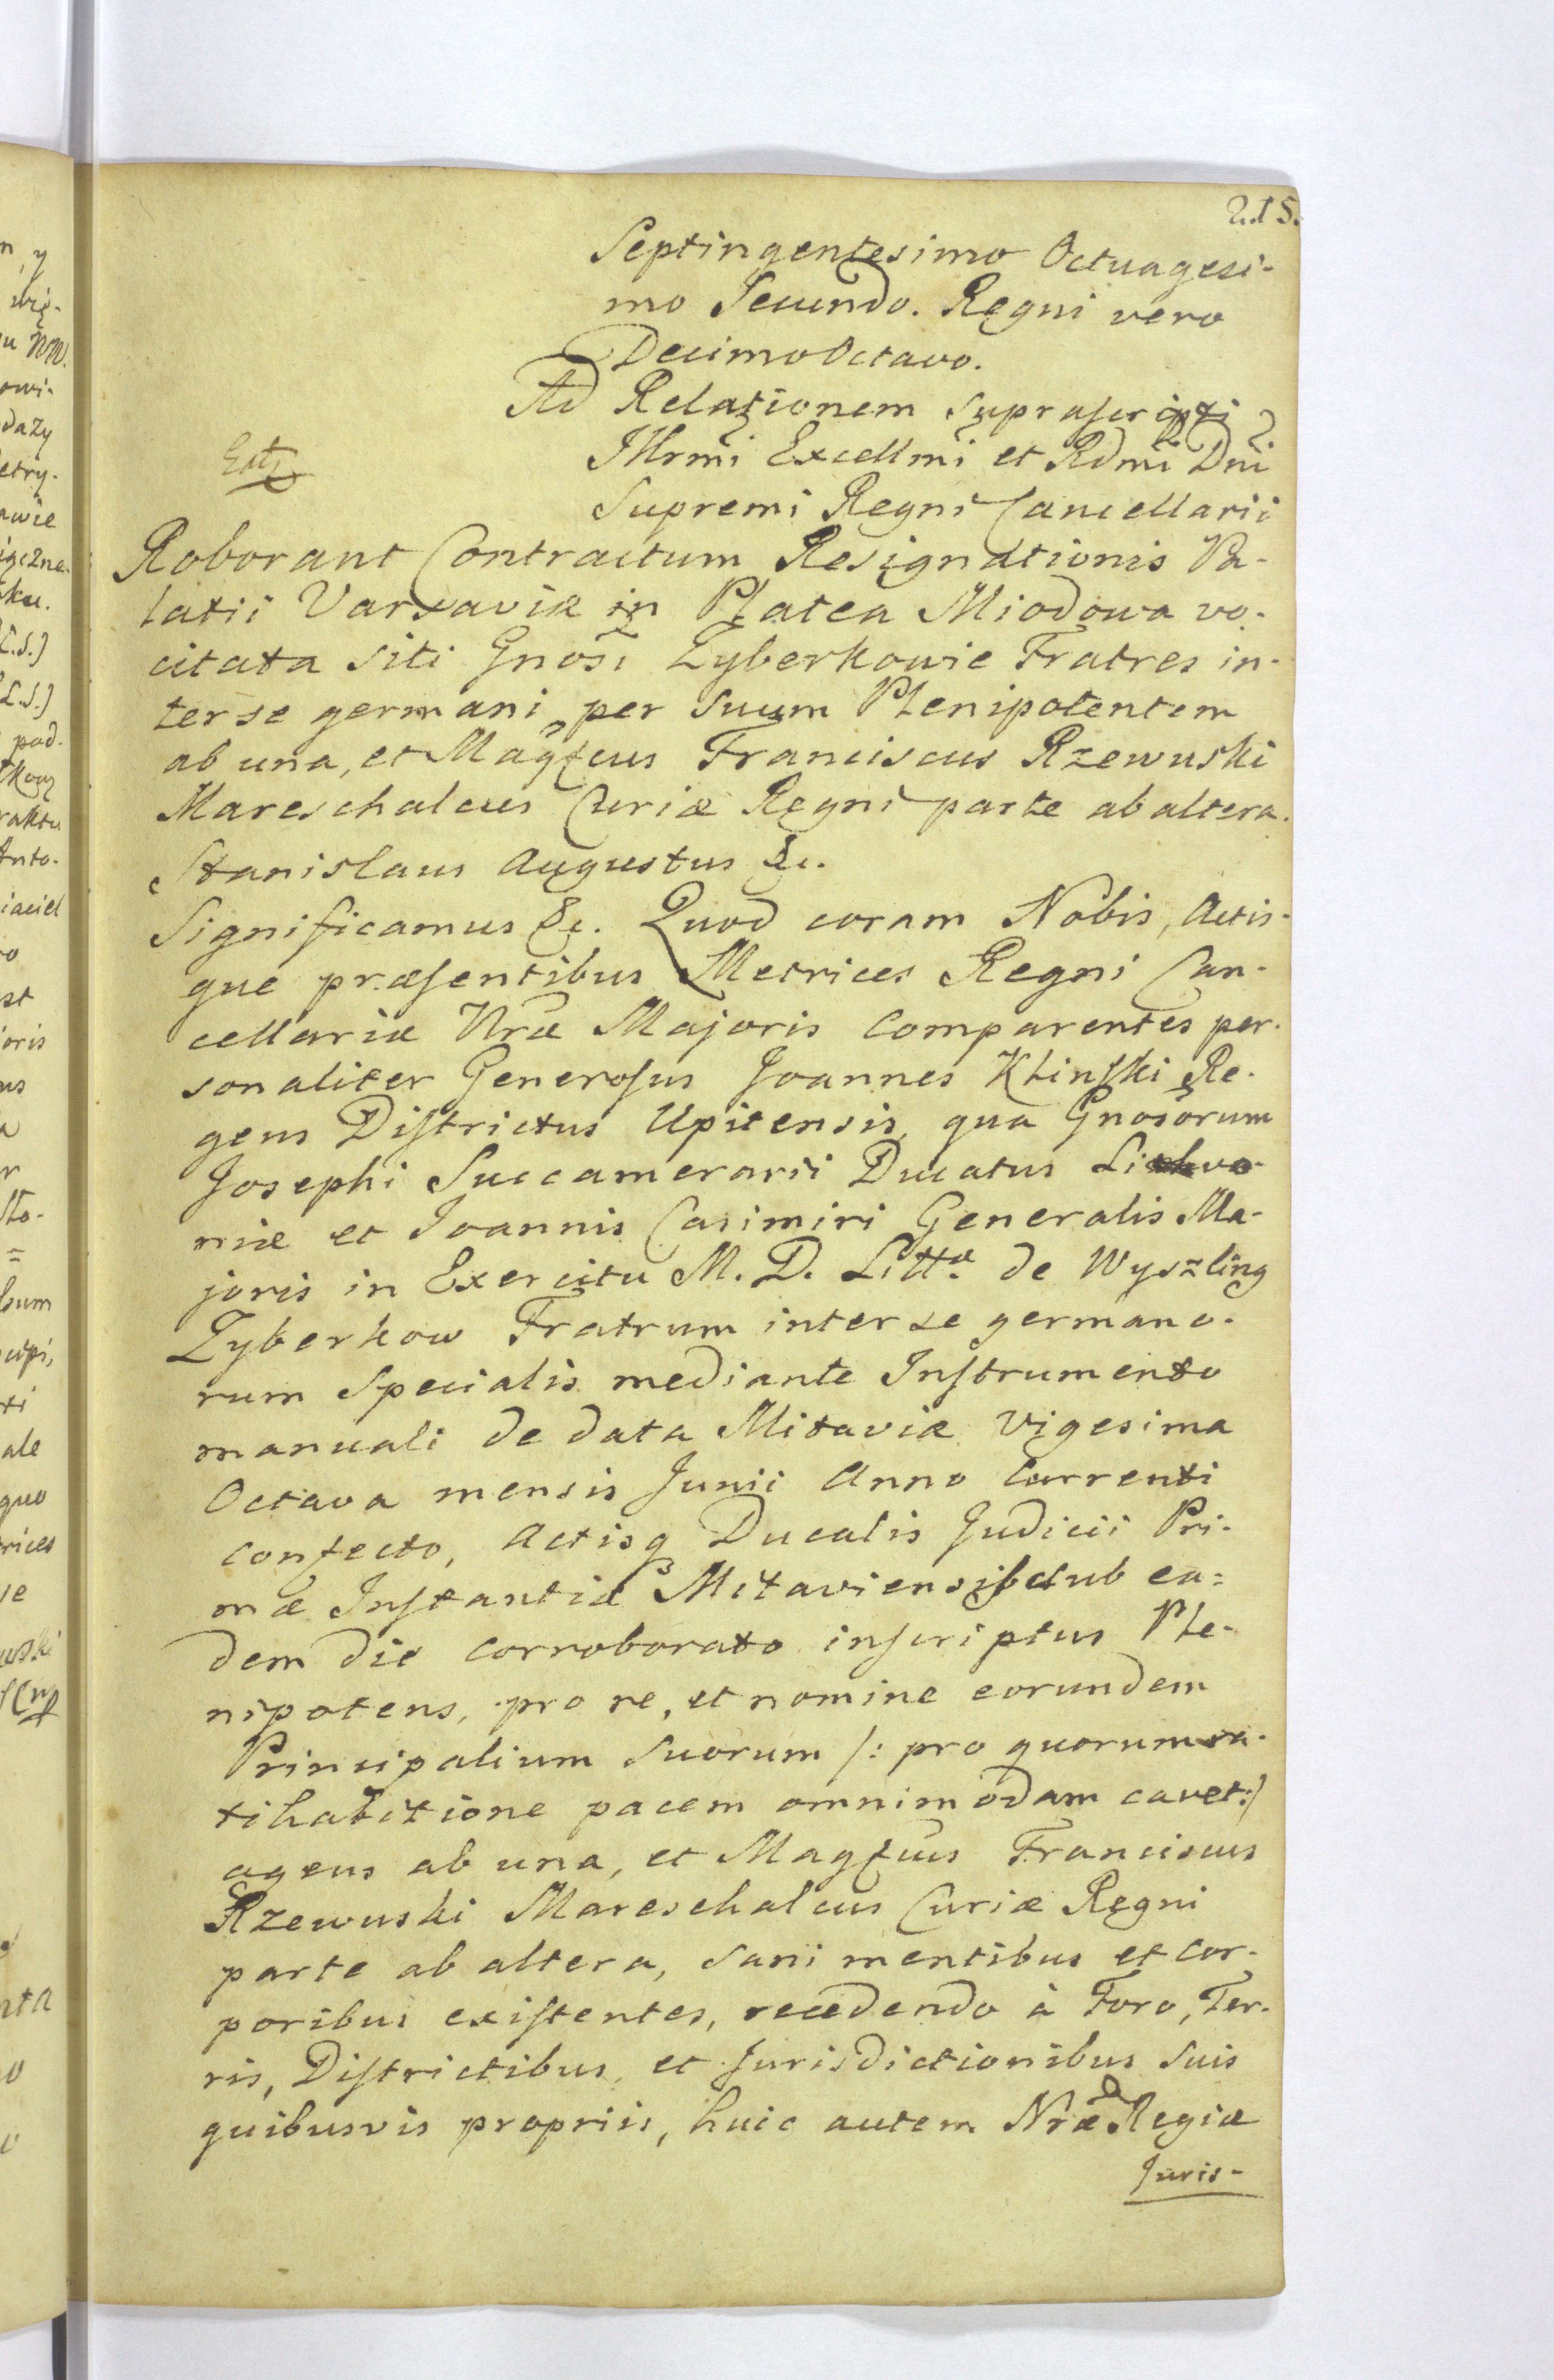 215.
Septingentesimo Octuagesi-
mo Secundo. Regni vero
Decimo Octavo.
Ad Relationem suprascripti
Illrmi Excellmi et Rdmi Dni
Supremi Regni Cancellarii
Roborant Contractum Resignationis Pa-
latii Varsaviæ in Platea Miodowa vo-
citata siti Gnosi Zyberkowie Fratres in-
ter se germani per suum Plenipotentem
ab una, et Magfcus Franciscus Rzewuski
Mareschalcus Curiæ Regni parte ab altera.
Stanislaus Augustus &c.
Significamus &c. Quod coram Nobis, Actis-
que præsentibus Metrices Regni Can-
cellariæ Nræ Majoris Comparentes per-
sonaliter Generosus Joannes Klinski Re-
gens Districtus Upitensis, qua Gnosorum
Josephi Succamerarii Ducatus Livo-
niæ et Joannis Casimiri Generalis Ma-
joris in Exercitu M. D. Littæ de Wyszling
Zyberkow Fratrum inter se germano-
rum Specialis mediante Instrumento
manuali de data Mitaviæ Vigesima
Octava mensis Junii Anno Currenti
confecto, Actisq Ducalis Judicii Pri-
mæ Instantiæ Mitaviensis sub ea=
dem die corroborato inscriptus Ple-
nipotens, pro re, et nomine eorundem
Principalium suorum /: pro quorum ra-
tihabitione pacem omnimodam cavet:/
agens ab una, et Magfcus Franciscus
Rzewuski Mareschalcus Curiæ Regni
parte ab altera, sani mentibus et cor-
poribus existentes, recedendo à Foro, Ter-
ris, Districtibus, et Jurisdictionibus suis
quibusvis propriis, huic autem Nræ Regiæ
Juris-